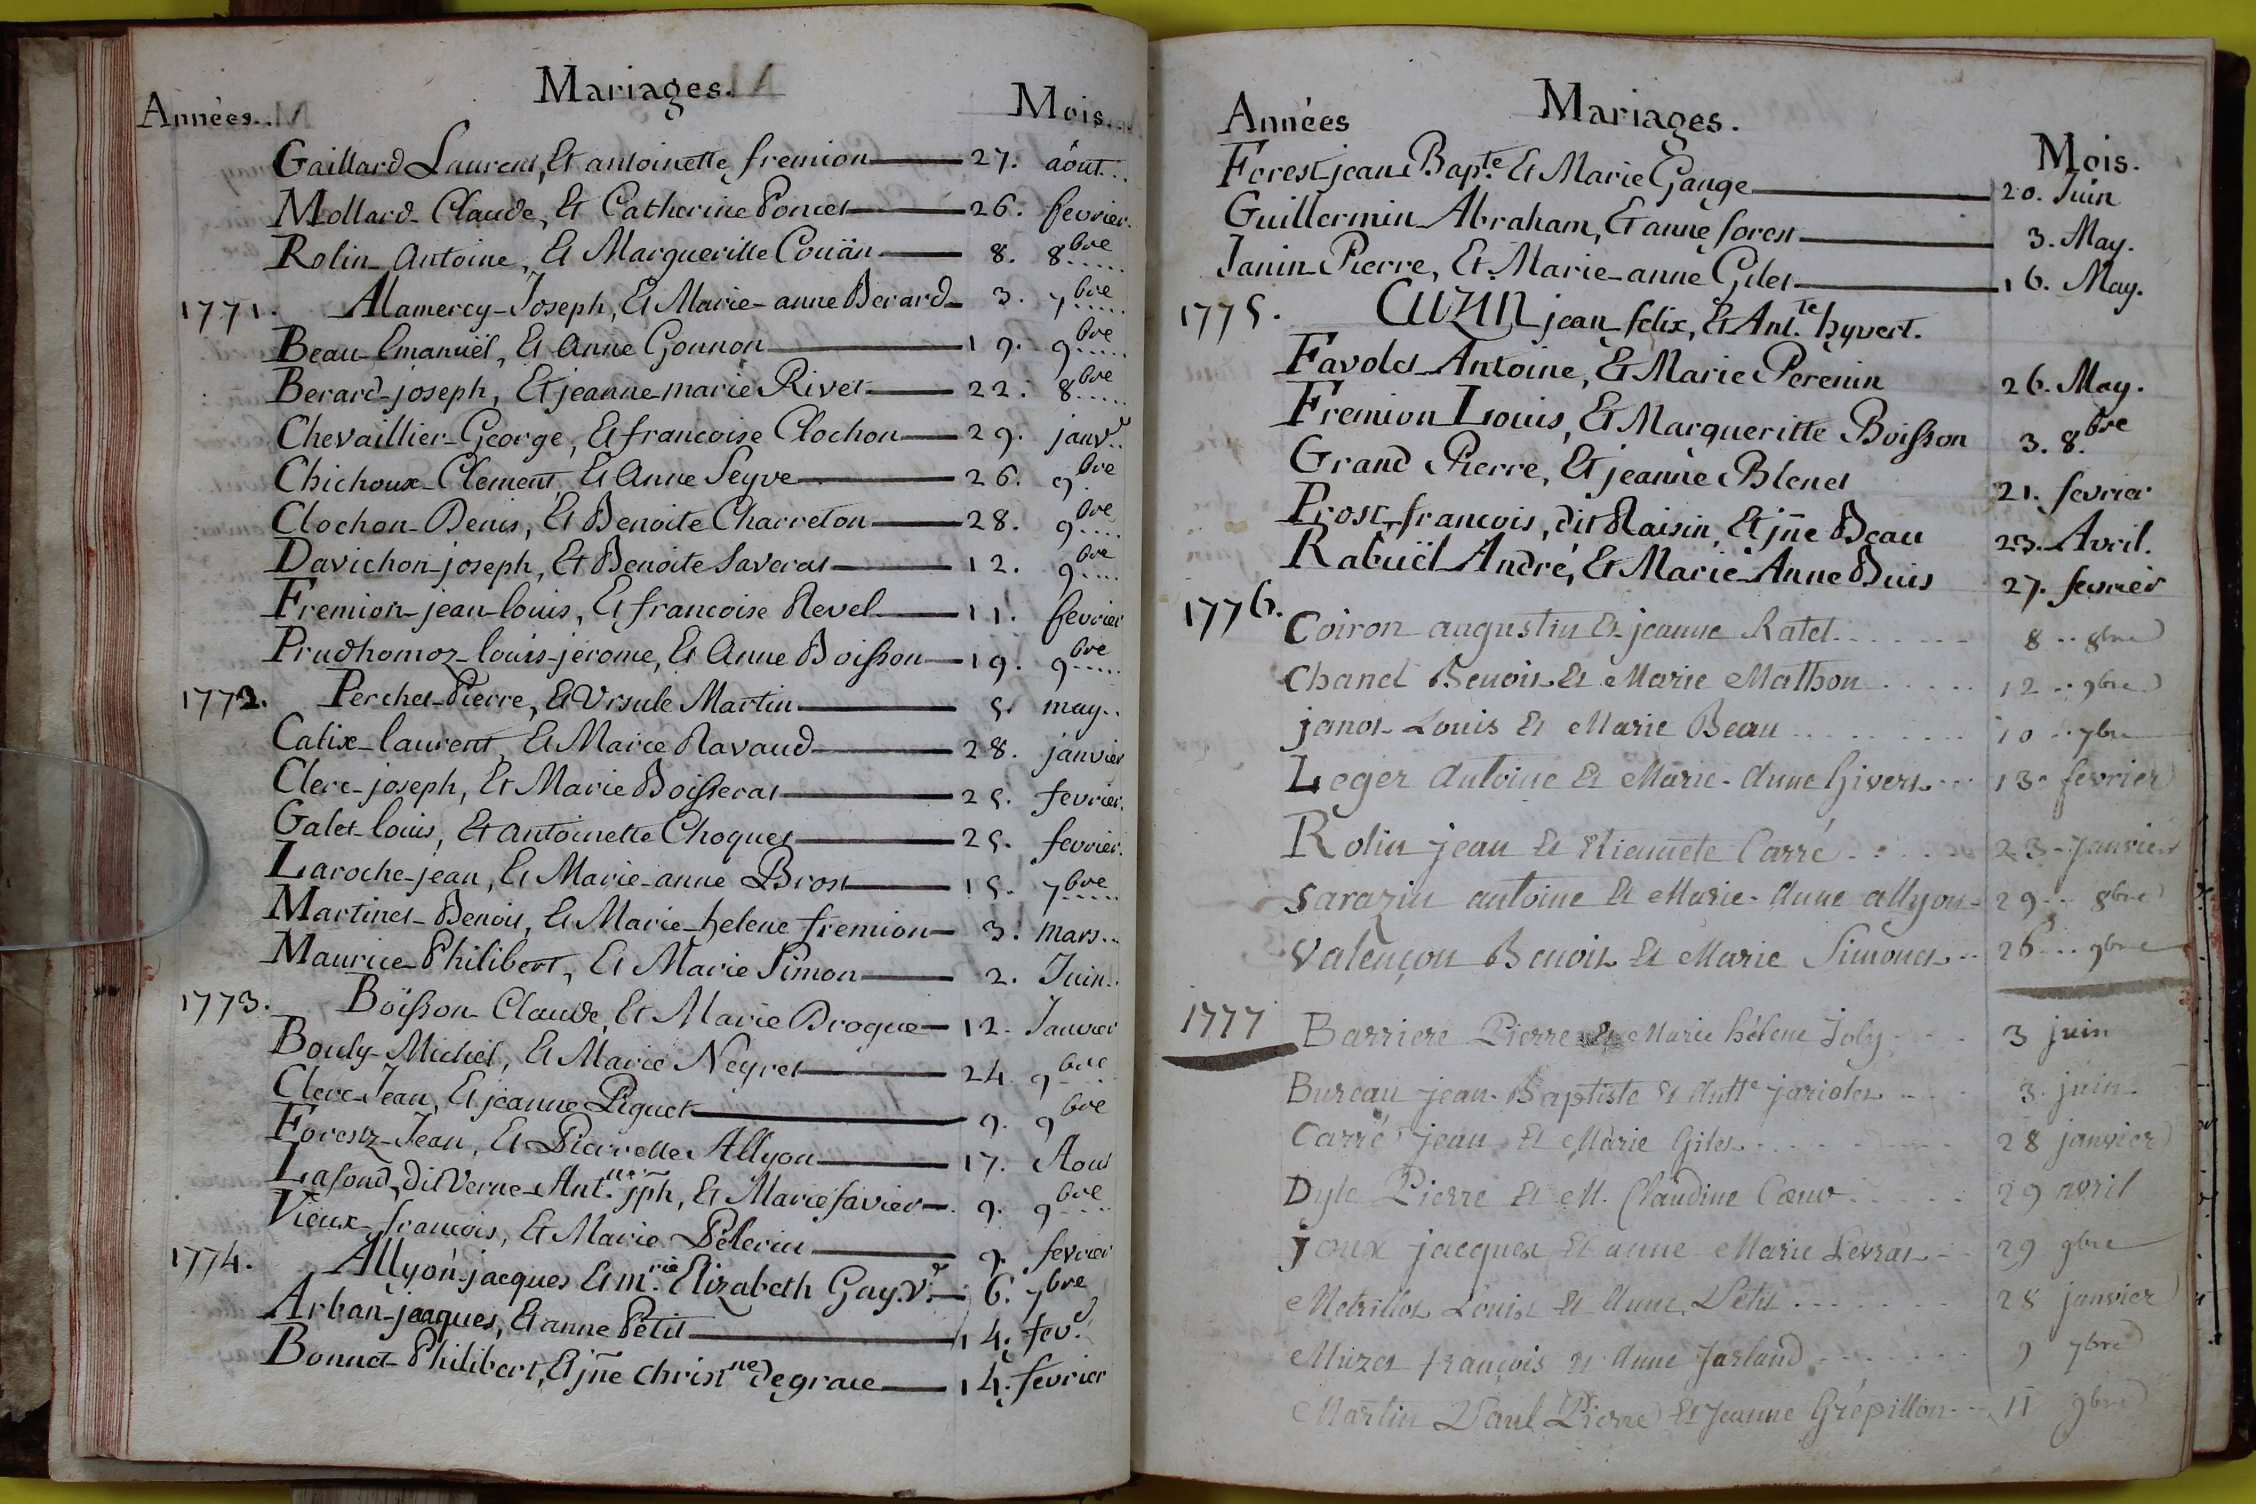 Mariages.
Années. Mois.
Gaillard Laurent, Et antoinette fremion — 27. aôut
Mollard Claude, Et Catherine Poncet — 26. fevrier.
Rolin antoine, Et Margueritte Couän — 8. 8bre
1771. Alamercy Joseph, Et Marie anne Berard 3. 7bre
Beau Emanuël, Et Anne Gonnon — 19. 9bre
Berard joseph, Et jeanne marie Rivet — 22. 8bre
Chevaillier George, Et francoise Clochon — 29. janvr
Chichoux Clement, Et Anne Seyve — 26. 9bre
Clochon Denis, Et Benoite Charreton — 28. 9bre
Davichon joseph, Et Benoite Saverat — 12. 9bre
Fremion jean louis, Et francoise Revel — 11. fevrier
Prudhomoz louis jerome, Et Anne Boisson — 19. 9bre
1772. Perchet Pierre, Et Ursule Martin — 5. may.
Calix laurent, Et Marie Ravaud — 28. janvier
Clerc joseph, Et Marie Boisserat — 25. fevrier.
Galet louis, Et antoinette Choquet — 25. fevrier.
Laroche jean, Et Marie anne Brost — 15. 7bre
Martinet Benoit, Et Marie helene fremion — 3. mars
Maurice Philibert, Et Marie Simon — 2. Juin.
1773. Boïsson Claude, Et Marie Brogue — 12. Janvier
Bouly Michel, Et Marie Neyret — 24 9bre
Clerc Jean, Et jeanne Piguet — 9. 9bre
Forestz Jean, Et Pierrette Allyon — 17. Aout
Lafond, dit Verne Ant.ne jph, Et Marie favier — 9. 9bre
Vieux francois, Et Marie Pelerin — 9. fevrier
1774. Allyon jacques Et m.rie Elizabeth Gay.v.e — 6. 7bre
Arban jacques, Et anne Petit — 14. fevr.
Bonnet Philibert, Et jñe christne degrace — 14. fevrier
Mariages.
Années Mois.
Forest jean Bapte. Et Marie Gange — 20. Juin
Guillermin Abraham, Et anne forest — 3. May.
Janin Pierre, Et Marie anne Gilet — 16. May.
1775. CUZIN jean felix, Et Ant.te hyvert.
Favolet Antoine, Et Marie Perenin 26. May.
Fremion Louis, Et Margueritte Boisson 3. 8bre
Grand Pierre, Et jeanne Blenet 21. fevrier
Prost francois, dit Raisin, Et jñe Beau 23. Avril.
Rabuël André, Et Marie Anne Buis 27. fevrier
1776. Coiron augustin Et jeanne Ratet 8 8bre
Chanel Benoit Et Marie Mathon 12 9bre
janot Louis Et Marie Beau 10 7bre
Leger Antoine Et Marie Anne hivert 13 fevrier
Rolin jean Et Etiennete Carré 23 Janvier
Sarazin antoine Et Marie Anne allyon 29 8bre
Valençon Benoit Et Marie Simonet 26 9bre
1777 Barriere Pierre Et Marie hélene Joly 3 juin
Bureau jean Baptiste Et Antte jariolet 3 juin
Carré jean Et Marie Gilet 28 janvier
Dyle Pierre Et M. Claudine Cœur 29 avril
joux jacques Et anne Marie Levrat 29 9bre
Metrillot Louis Et Anne Petit 28 janvier
Muzet françois Et Anne Jarland 9 7bre
Martin Paul Pierre Et Jeanne Grépillon 11 9bre